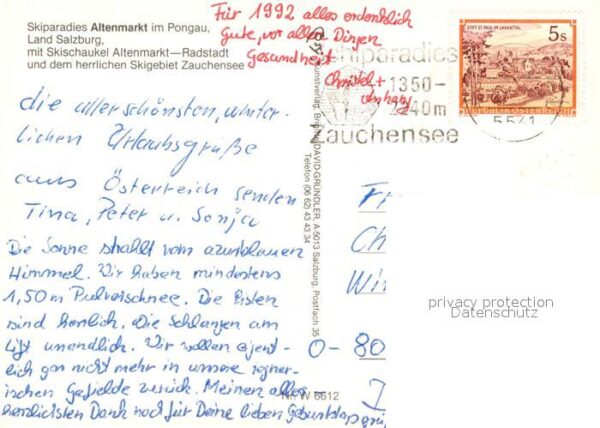 Skiparadies Altenmarkt im Pongau,
Land Salzburg,
mit Skischaukel Altenmarkt—Radstadt
und dem herrlichen Skigebiet Zauchensee
Für 1992 alles erdenklich
Gute, vor allen Dingen
Gesundheit
Christel +
die allerschönsten, winter-
lichen Urlaubsgrüße
aus Österreich senden
Tina, Peter u. Sonja
Die Sonne strahlt vom azurblauen
Himmel. Wir haben mindestens
1,50m Pulverschnee. Die Pisten
sind herrlich. Die Schlangen am
Lift unendlich. Wir wollen eigent-
lich gar nicht mehr in unsere regner-
ischen Gefielde zurück. Meinen aller-
herzlichsten Dank noch für Deine lieben Geburtstagsgrü
Kunstverlag, Brigitte DAVID-GRÜNDLER, A-5013 Salzburg, Postfach 35
Telefon (06 62) 43 43 34
Nr. W 6612
Skiparadies
1350-
2240m
Zauchensee
5541
STIFT ST. PAUL IM LAVANTTAL
5s
REPUBLIK ÖSTERREICH
Fr
Ch
Wi
0-80
privacy protection
Datenschutz